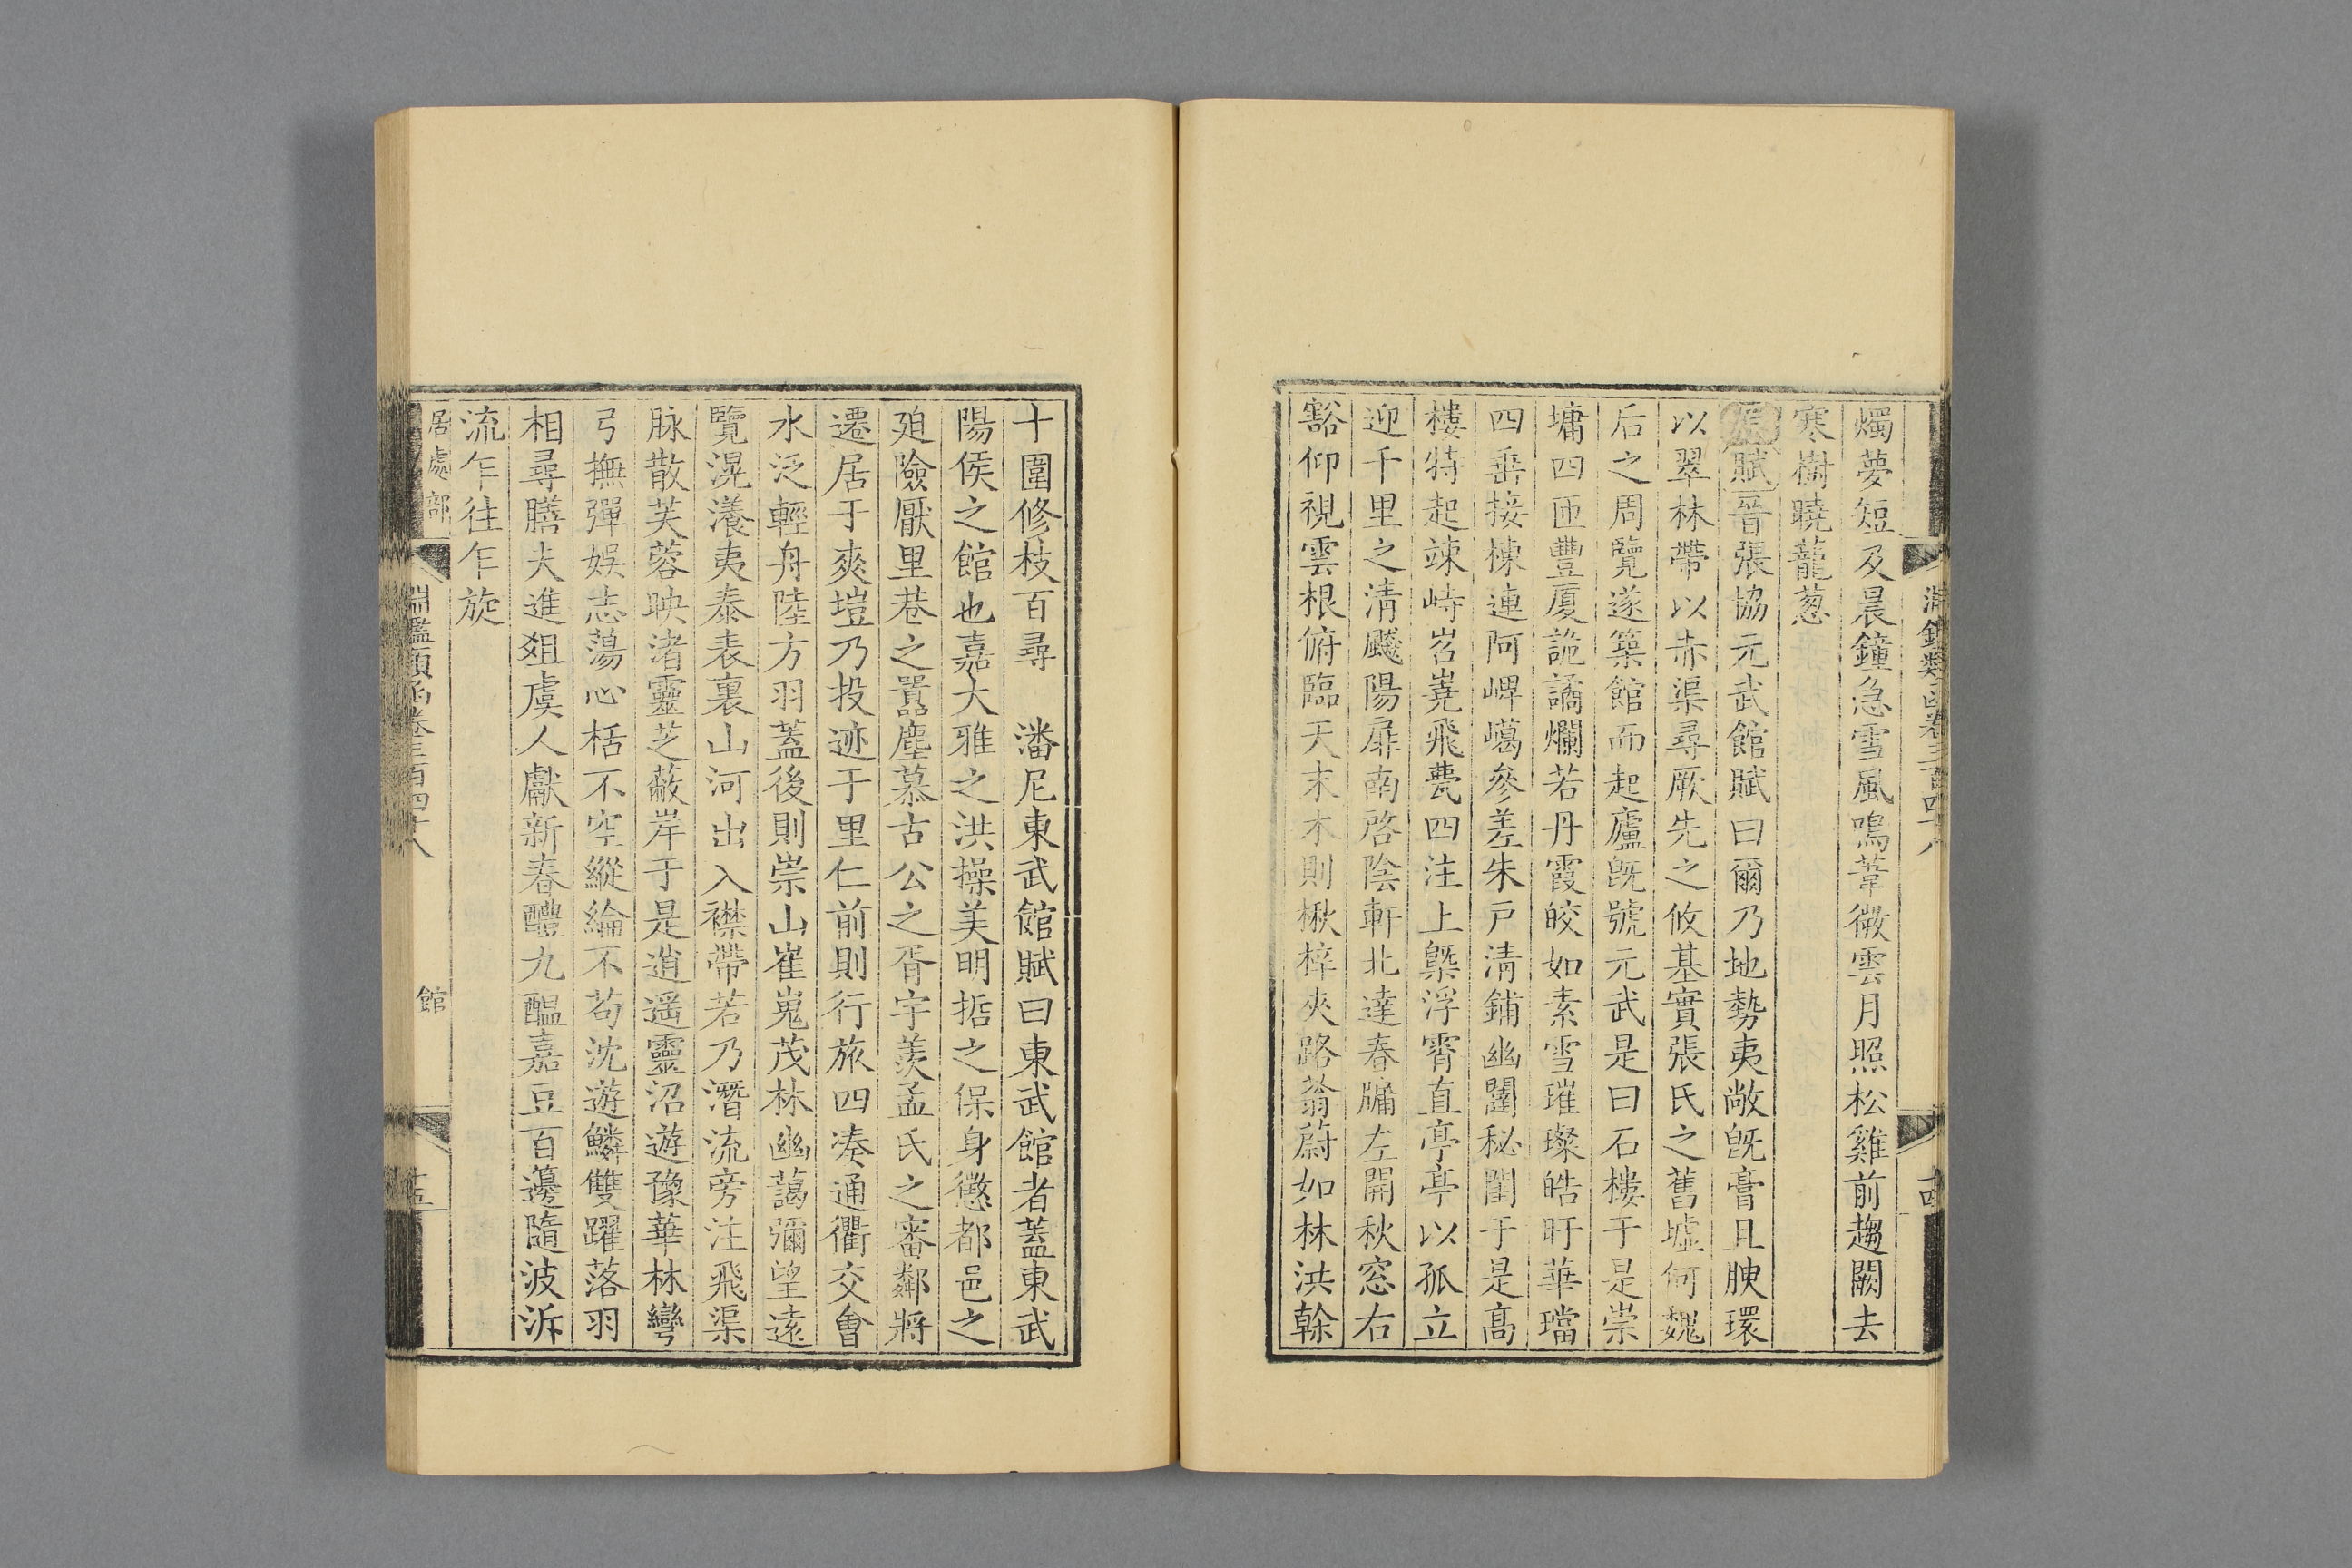 淵鑑類函卷三百四十八
十四
燭夢短及晨鐘急雪風鳴葦微雲月照松雞前趨闕去
寒樹曉蘢葱
原賦晉張協元武館賦曰爾乃地勢夷敞旣膏且腴環
以翠林帶以赤渠尋厥先之攸基實張氏之舊墟何魏
后之周覽遂築館而起廬旣號元武是曰石樓于是崇
墉四匝豐厦詭譎爛若丹霞皎如素雪璀璨皓旰華璫
四垂接棟連阿崥㠔參差朱戶清鋪幽闥秘閨于是髙
樓特起竦峙岧嶤飛甍四注上櫱浮霄直亭亭以孤立
迎千里之清飇陽扉南啓陰軒北達春牖左開秋窓右
豁仰視雲根俯臨天末木則楸梓夾路蓊蔚如林洪榦
十圍修枝百尋　潘尼東武館賦曰東武館者蓋東武
陽侯之館也嘉大雅之洪操美明哲之保身懲都邑之
廹險厭里巷之囂塵慕古公之胥宇羨孟氏之審鄰將
遷居于爽塏乃投迹于里仁前則行旅四湊通衢交會
水泛輕舟陸方羽蓋後則崇山崔嵬茂林幽藹彌望遠
覽滉瀁夷泰表裏山河出入襟帶若乃潛流旁注飛渠
脉散芙蓉映渚靈芝蔽岸于是逍遥靈沼遊豫華林彎
弓撫彈娛志蕩心栝不空縱綸不苟沈遊鱗雙躍落羽
相尋膳夫進俎虞人獻新春醴九醞嘉豆百籩隨波泝
流乍往乍旋
居處部
淵鑑類函卷三百四十八
館
十五